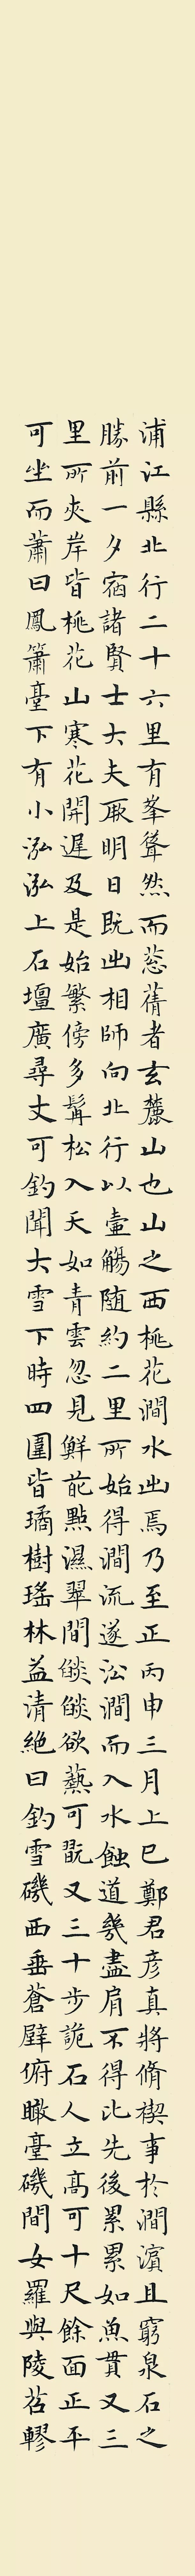 浦江縣北行二十六里有峯聳然而葱蒨者玄麓山也山之西桃花澗水出焉乃至正丙申三月上巳鄭君彦真將脩禊事於澗濱且窮泉石之
勝前一夕宿諸賢士大夫厥明日既出相師向北行以壷觴随約二里所始得澗流遂㳂澗而入水蝕道幾盡肩不得比先後累累如魚貫又三
里所夾岸皆桃花山寒花開遲及是始繁傍多髯松入天如青雲忽見鮮葩點濕翠間焰焰欲爇可翫又三十步詭石人立高可十尺餘面正平
可坐而蕭曰鳳簫臺下有小泓泓上石壇廣尋丈可釣聞大雪下時四圍皆璚樹瑤林益清絶曰釣雪磯西垂蒼壁俯瞰臺磯間女羅與陵苕轇